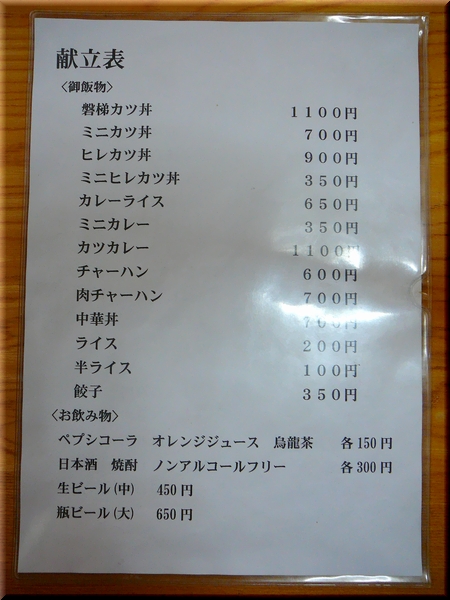 献立表
〈御飯物〉
磐梯カツ丼 １１００円
ミニカツ丼 ７００円
ヒレカツ丼 ９００円
ミニヒレカツ丼 ３５０円
カレーライス ６５０円
ミニカレー ３５０円
カツカレー １１００円
チャーハン ６００円
肉チャーハン ７００円
中華丼 ７００円
ライス ２００円
半ライス １００円
餃子 ３５０円
〈お飲み物〉
ペプシコーラ オレンジジュース 烏龍茶 各150円
日本酒 焼酎 ノンアルコールフリー 各300円
生ビール(中) 450円
瓶ビール(大) 650円